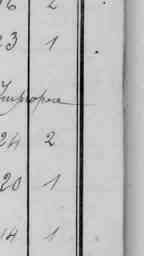 16 2
23 1
Impropre
24 2
20 1
14 1